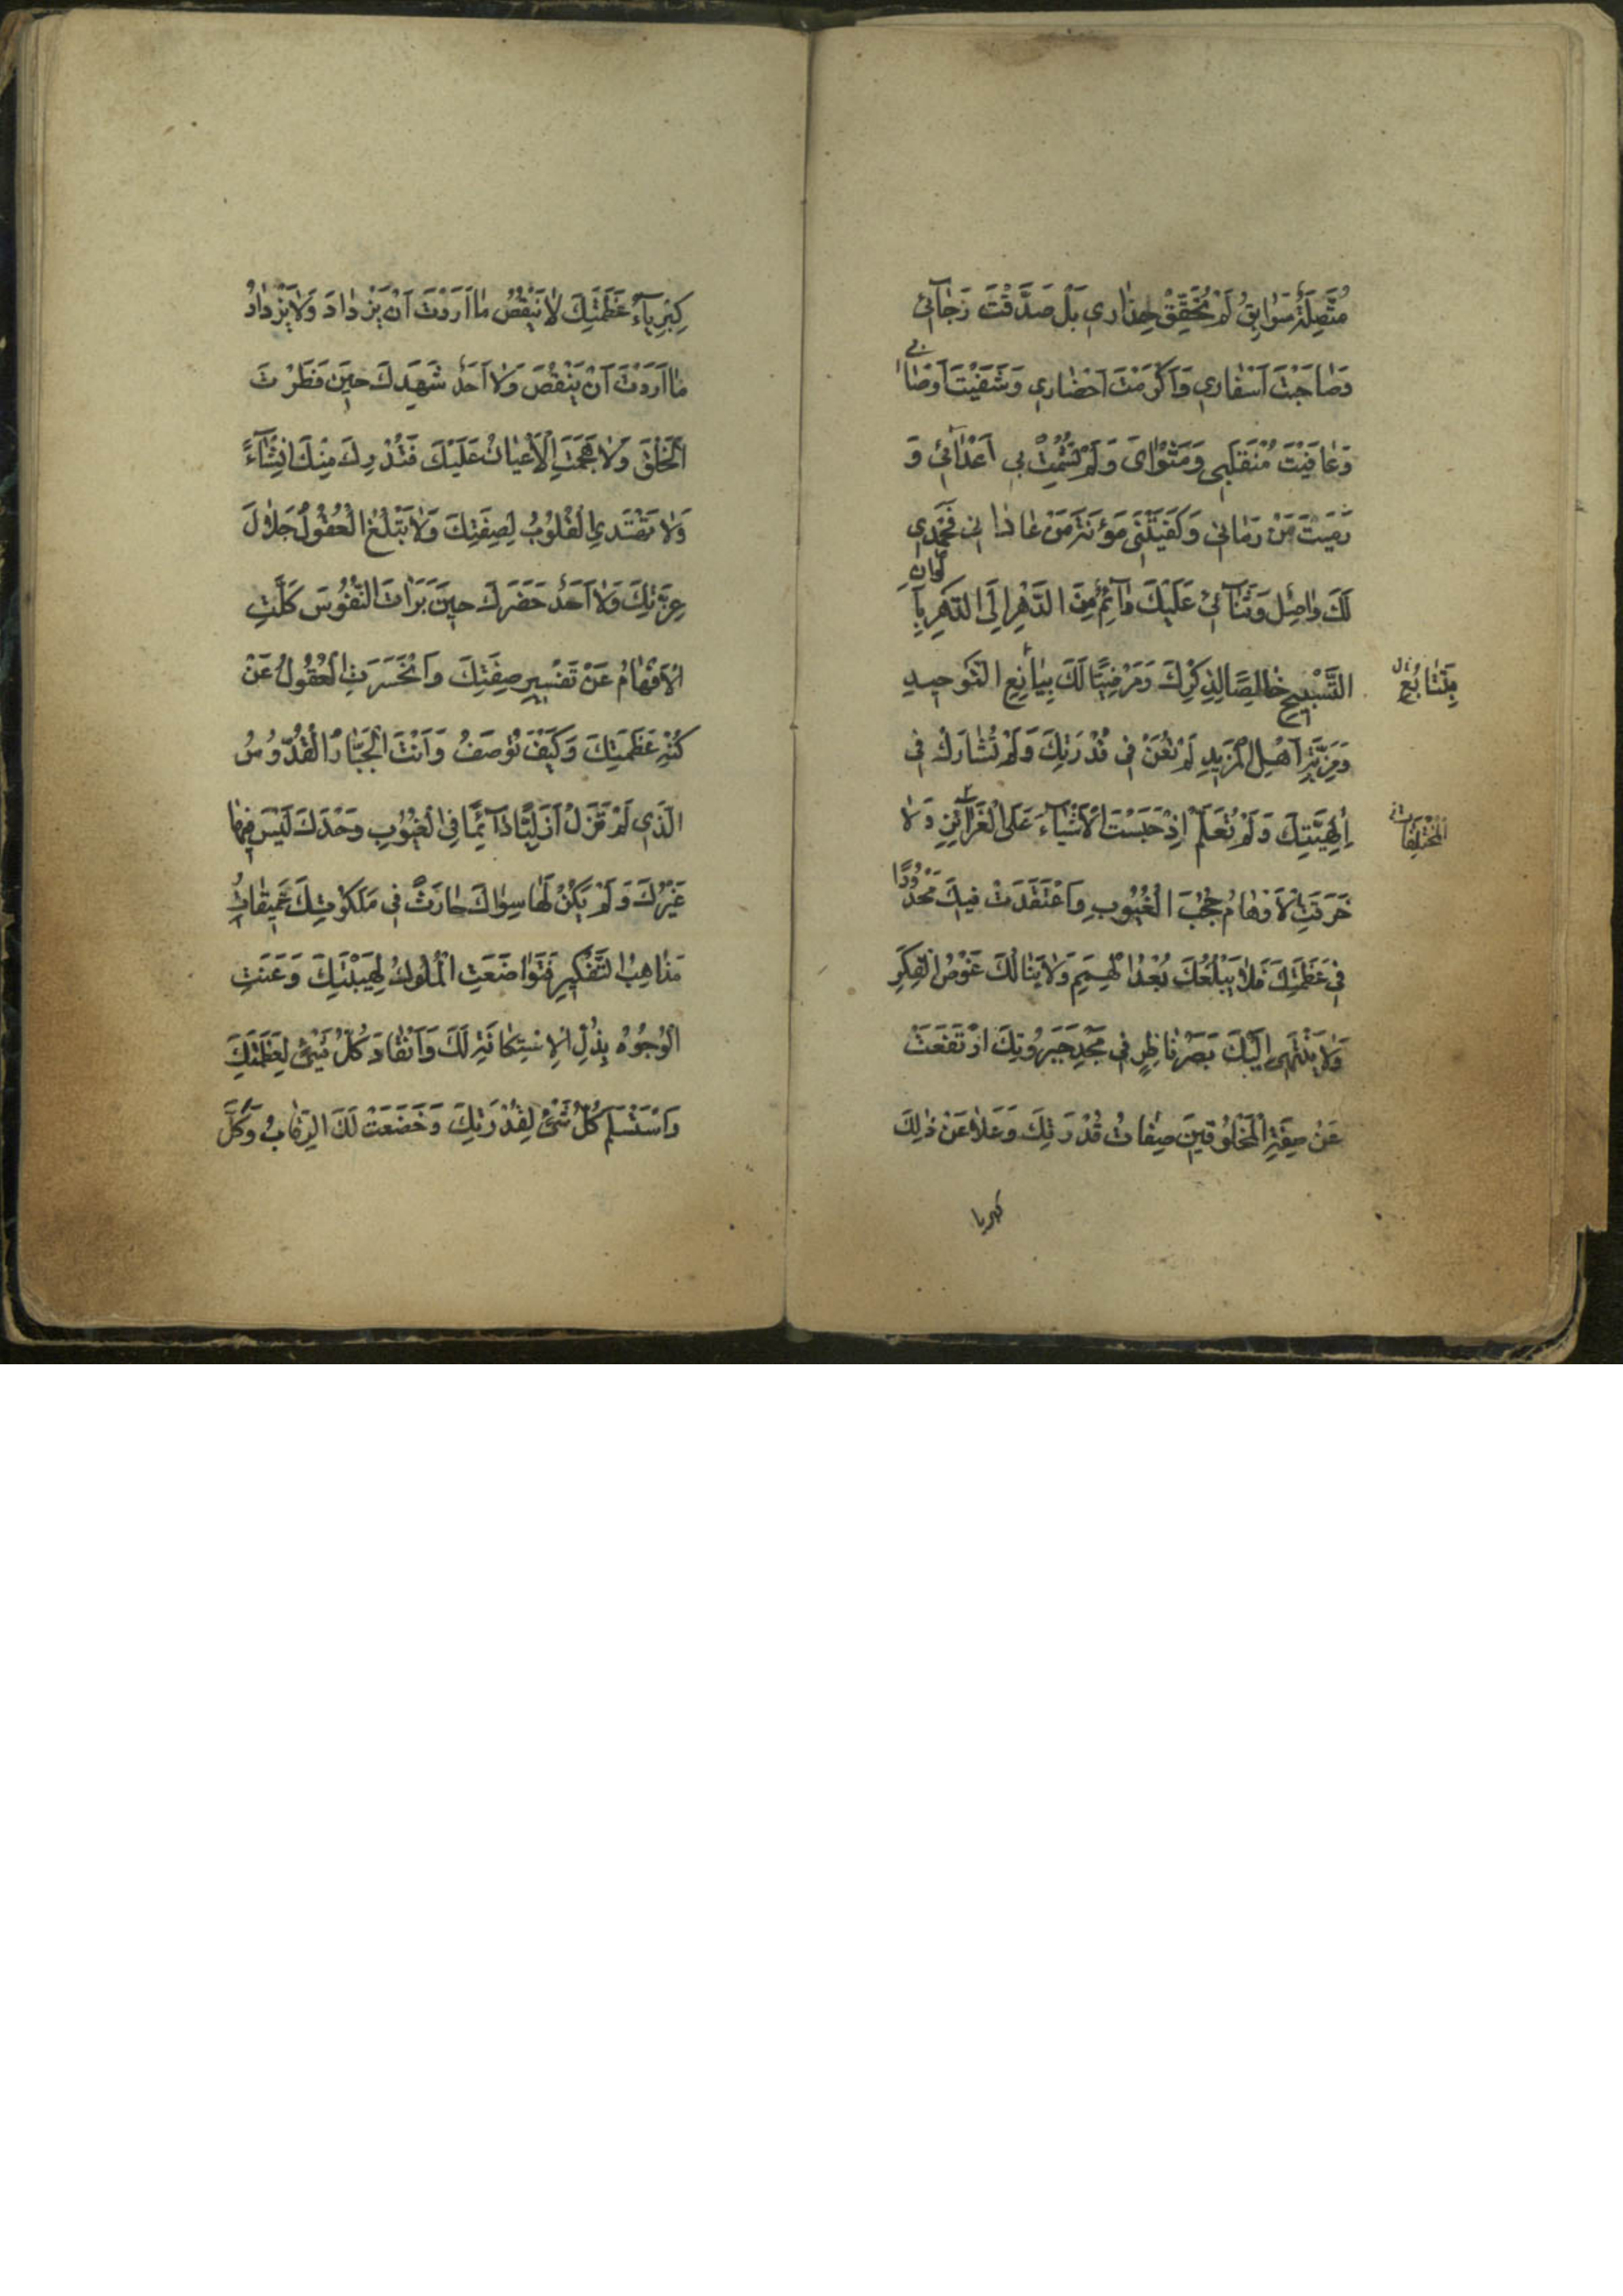 مُتَّصِلَةٌ سَوَابِقُ لَمْ تُحَقِّقْ حِذَارِي بَلْ صَدَّقْتَ رَجَآئِي
وَصَاحَبْتَ اَسْفَارِي وَاَكْرَمْتَ اَحْضَارِي وَشَفَيْتَ اَوْصَابِي
وَعَافَيْتَ مُنْقَلَبِي وَمَثْوَايَ وَلَمْ تُشْمِتْ بِي اَعْدَآئِي وَ
رَمَيْتَ مَنْ رَمَانِي وَكَفَيْتَنِي مَؤُنَةَ مَنْ عَادَانِي فَحَمْدِي
لَكَ وَاصِلٌ وَثَنَآئِي عَلَيْكَ دَآئِمٌ مِنَ الدَّهْرِ اِلَى الدَّهْرِ بِاَلْوَانِ
التَّسْبِيحِ خَالِصًا لِذِكْرِكَ وَمَرْضِيًّا لَكَ بِيَانِعِ التَّوْحِيدِ
بِنَاصِعِ
وَمَزِيَّةِ اَهْلِ الْمَزِيدِ لَمْ تُعَنْ فِي قُدْرَتِكَ وَلَمْ تُشَارَكْ فِي
اِلٰهِيَّتِكَ وَلَمْ تُعْلَمْ اِذْ حَبَسْتَ الْاَشْيَآءَ عَلَى الْغَرَآئِزِ وَلَا
الْمُخْتَلِفَاتِ
خَرَقَتِ الْاَوْهَامُ حُجُبَ الْغُيُوبِ وَاعْتَقَدَتْ فِيكَ مَحْدُودًا
فِي عَظَمَتِكَ فَلَا يَبْلُغُكَ بُعْدُ الْهِمَمِ وَلَا يَنَالُكَ غَوْصُ الْفِكَرِ
وَلَا يَنْتَهِي اِلَيْكَ بَصَرُ نَاظِرٍ فِي مَجْدِ جَبَرُوتِكَ ارْتَفَعَتْ
عَنْ صِفَةِ الْمَخْلُوقِينَ صِفَاتُ قُدْرَتِكَ وَعَلَا عَنْ ذٰلِكَ
كبريا
كِبْرِيَآءُ عَظَمَتِكَ لَا يَنْقُصُ مَا اَرَدْتَ اَنْ يَزْدَادَ وَلَا يَزْدَادُ
مَا اَرَدْتَ اَنْ يَنْقُصَ وَلَا اَحَدٌ شَهِدَكَ حِينَ فَطَرْتَ
الْخَلْقَ وَلَا هَجَمَتِ الْاَعْيَانُ عَلَيْكَ فَتُدْرِكَ مِنْكَ اِنْشَآءً
وَلَا تَهْتَدِي الْقُلُوبُ لِصِفَتِكَ وَلَا تَبْلُغُ الْعُقُولُ جَلَالَ
عِزَّتِكَ وَلَا اَحَدٌ حَضَرَكَ حِينَ بَرَاْتَ النُّفُوسَ كَلَّتِ
الْاَفْهَامُ عَنْ تَفْسِيرِ صِفَتِكَ وَانْحَسَرَتِ الْعُقُولُ عَنْ
كُنْهِ عَظَمَتِكَ وَكَيْفَ تُوصَفُ وَاَنْتَ الْجَبَّارُ الْقُدُّوسُ
الَّذِي لَمْ تَزَلْ اَزَلِيًّا دَآئِمًا فِي الْغُيُوبِ وَحْدَكَ لَيْسَ فِيهَا
غَيْرُكَ وَلَمْ يَكُنْ لَهَا سِوَاكَ حَارَتْ فِي مَلَكُوتِكَ عَمِيقَاتُ
مَذَاهِبِ التَّفْكِيرِ فَتَوَاضَعَتِ الْمُلُوكُ لِهَيْبَتِكَ وَعَنَتِ
الْوُجُوهُ بِذُلِّ الْاِسْتِكَانَةِ لَكَ وَانْقَادَ كُلُّ شَيْءٍ لِعَظَمَتِكَ
وَاسْتَسْلَمَ كُلُّ شَيْءٍ لِقُدْرَتِكَ وَخَضَعَتْ لَكَ الرِّقَابُ وَكَلَّ